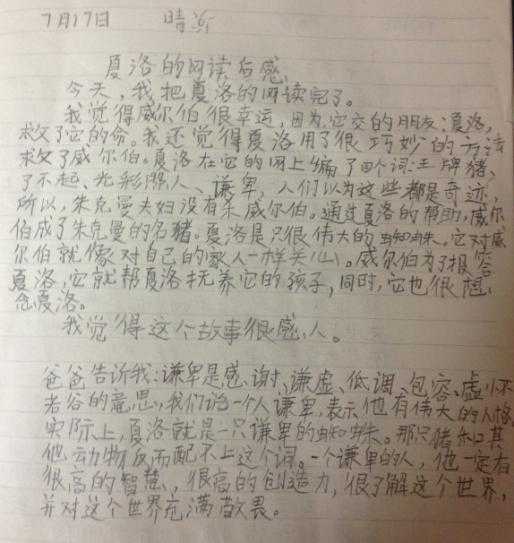 7月17日 晴
夏洛的网读后感
今天，我把夏洛的网读完了。
我觉得威尔伯很幸运，因为它交的朋友：夏洛，
救了它的命。我还觉得夏洛用了很巧妙的方法
救了威尔伯。夏洛在它的网上编了四个词：王牌猪，
了不起、光彩照人、谦卑，人们以为这些都是奇迹，
所以，朱克曼夫妇没有杀威尔伯。通过夏洛的帮助，威尔
伯成了朱克曼的名猪。夏洛是只很伟大的蜘蛛。它对威
尔伯就像对自己的家人一样关心。威尔伯为了报答
夏洛，它就帮夏洛抚养它的孩子，同时，它也很想
念夏洛。
我觉得这个故事很感人。
爸爸告诉我：谦卑是感谢、谦虚、低调、包容、虚怀
若谷的意思，我们说一个人谦卑，表示他有伟大的人格，
实际上，夏洛就是一只谦卑的蜘蛛。那只猪和其
他动物反而配不上这个词。一个谦卑的人，他一定有
很高的智慧，很高的创造力，很了解这个世界，
并对这个世界充满敬畏。